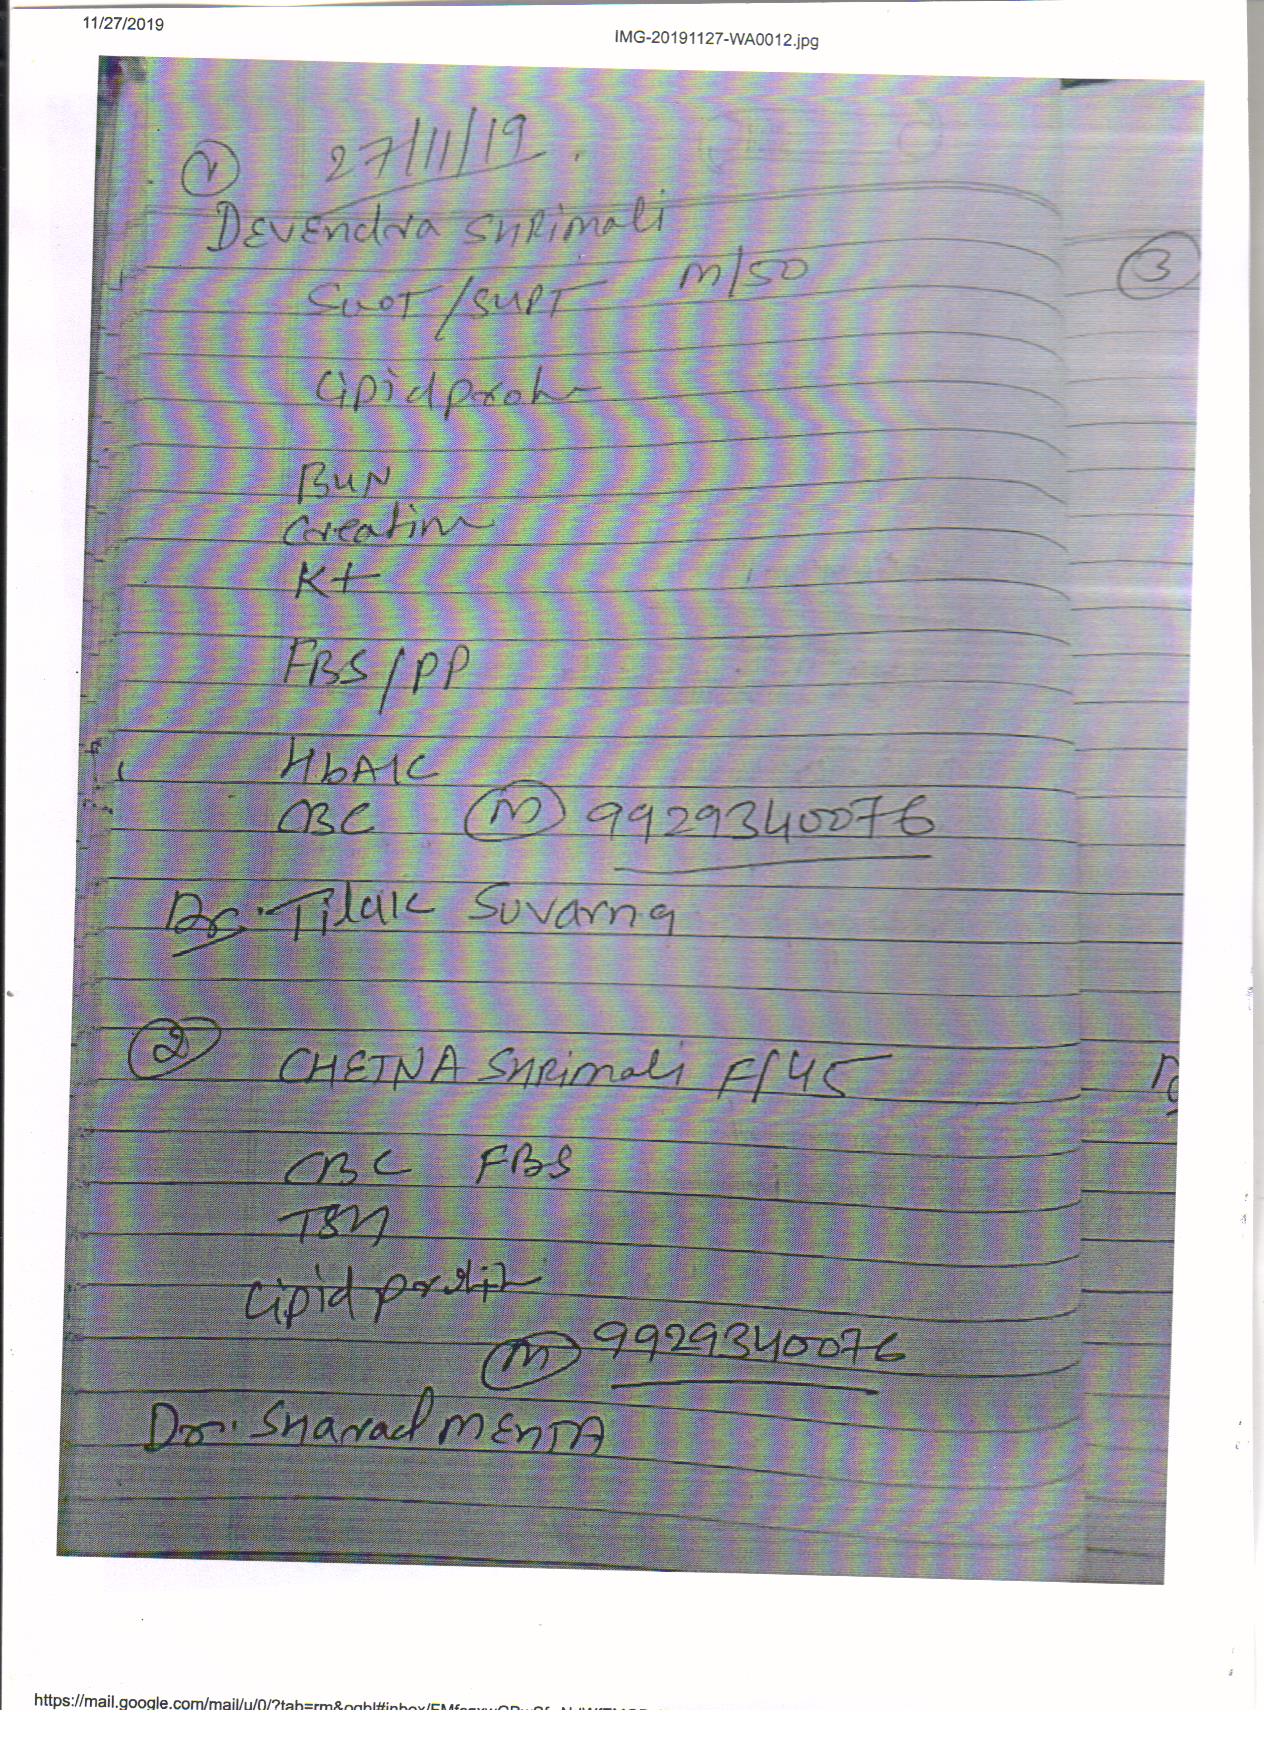 11/27/2019 IMG-20191127-WA0012.jpg
27/11/19
DEVENdra SHRimali
M/50
3
SGOT/SGPT
Lipid profile
BUN
Creatin
K+
FBS/PP
HbA1C
CBC M 9929340076
Dr. Tilak Suvarna
2 CHETNA SHRimali F/45
CBC FBS
TSH
Lipid profile
M 9929340076
Dr. Sharad MEHTA
https://mail.google.com/mail/u/0/?tab=rm&ogbl#inbox/